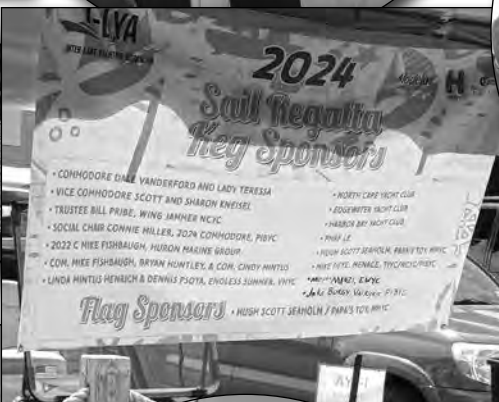 I-LYA
INTER LAKE YACHTING ASSOCIATION
2024
Sail Regatta
Keg Sponsors
• COMMODORE DALE VANDERFORD AND LADY TERESSA
• VICE COMMODORE SCOTT AND SHARON KNEISEL
• TRUSTEE BILL PRIBE, WING JAMMER NCYC
• SOCIAL CHAIR CONNIE MILLER, 2024 COMMODORE, PIBYC
• 2022 C MIKE FISHBAUGH, HURON MARINE GROUP
• COM. MIKE FISHBAUGH, BRYAN HUNTLEY, & COM. CINDY MINTUS
• LINDA MINTUS HENRICH & DENNIS PSOTA, ENDLESS SUMMER,
• NORTH CAPE YACHT CLUB
• EDGEWATER YACHT CLUB
• HARBOR BAY YACHT CLUB
• PHRF LE
• HUGH SCOTT SEAHOLM, PAPA'S TOY,
• MIKE MENACE,
EWYC
Flag Sponsors
• HUGH SCOTT SEAHOLM / PAPA'S TOY,